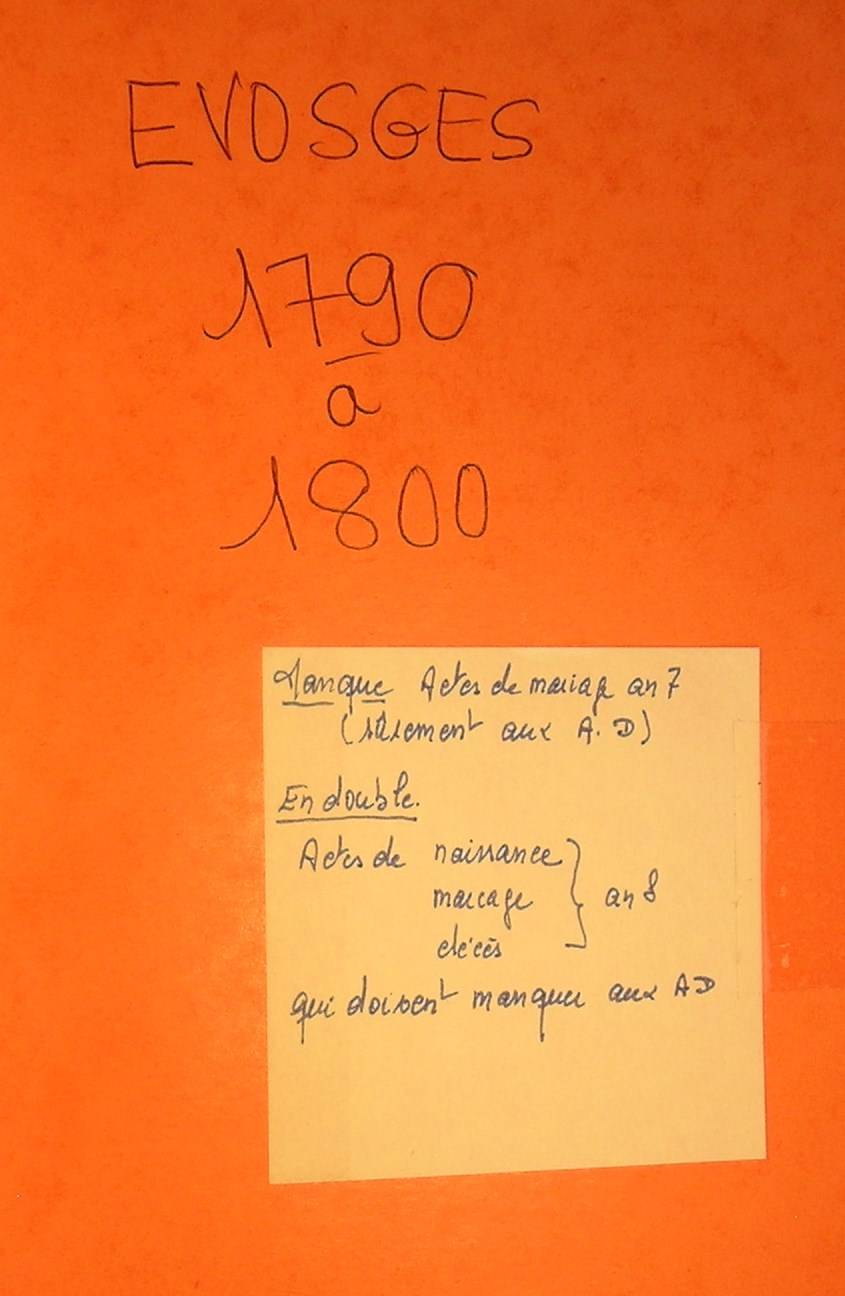 EVOSGES
1790
à
1800
Manque Actes de mariage an 7
(sûrement aux A.D)
En double.
Actes de naissance
mariage } an 8
décès
qui doivent manquer aux AD